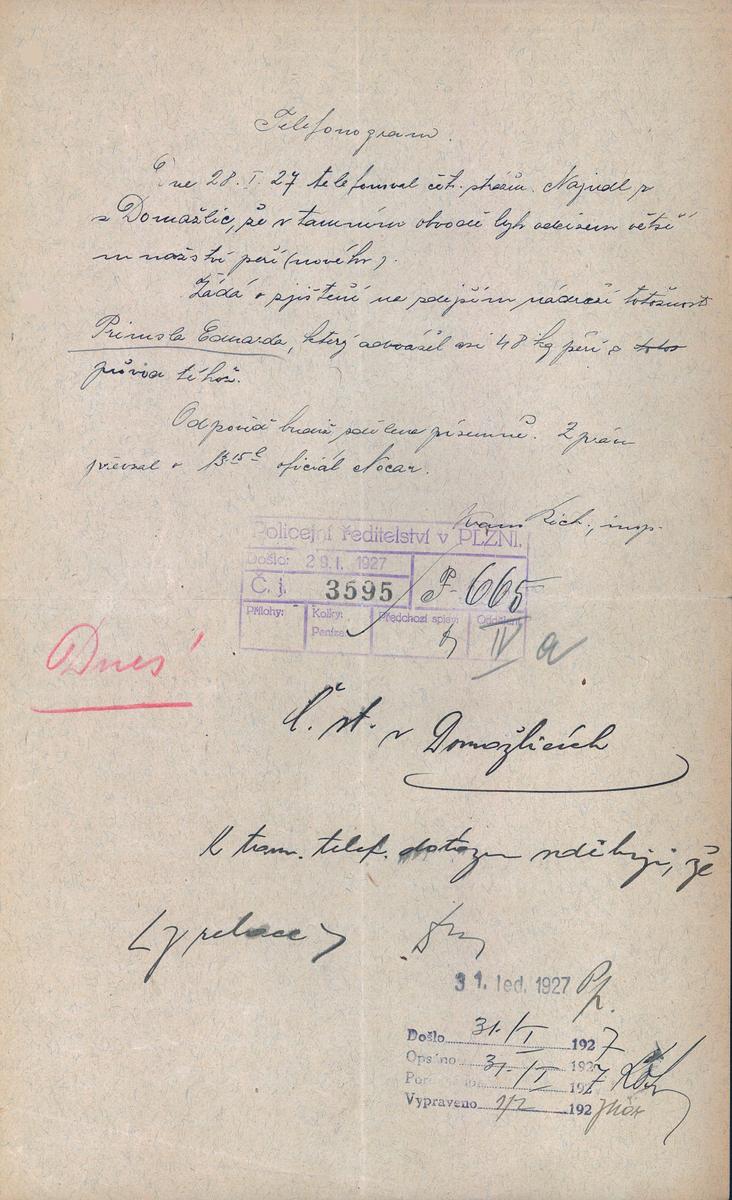 Telefonogram.
Dne 28. I. 27 telefonoval čet. strážm. Najndl
z Domažlic, že v tamním obvodě byl odcizeno větší
množství peří (nového).
Žádá o zjištění na zdejším nádraží totožnost
Primsla Eduarda, který odvážel asi 48 kg peří a totož
původ téhož.
Odpověď budiž sdělena písemně. Zprávu
převzal v 13 15 h oficiál Nocar.
Rich., insp.
Policejní ředitelství v PLZNI.
Došlo: 29. I. 1927
Č. j. 3595 P-665
Přílohy: Kolky: Předchozí spisy: Oddělení
Peníze: IV a
Dnes!
Č. st. v Domažlicích
K tam. telef. dotazu sděluji, že
(z relace)
31. led. 1927
Došlo 31./I 1927
Opsáno 31./I 1927
Por 1927
Vypraveno 1/2 1927